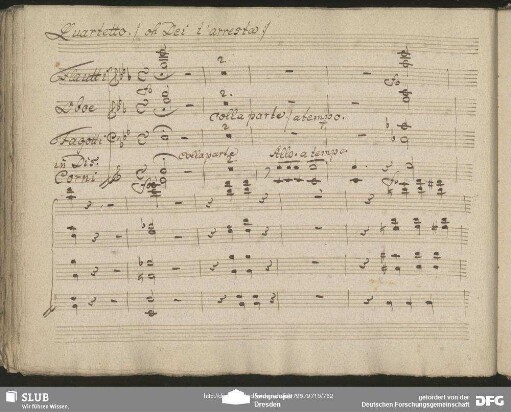 Quartetto. / oh Dei l'arresta /
Flautti
Oboe
colla parte / a tempo.
Fagotti
in Dis.
Corni
Colla parte
Allo. a tempo.
SLUB
Wir führen Wissen.
Dresden
gefördert von der
Deutschen Forschungsgemeinschaft
DFG